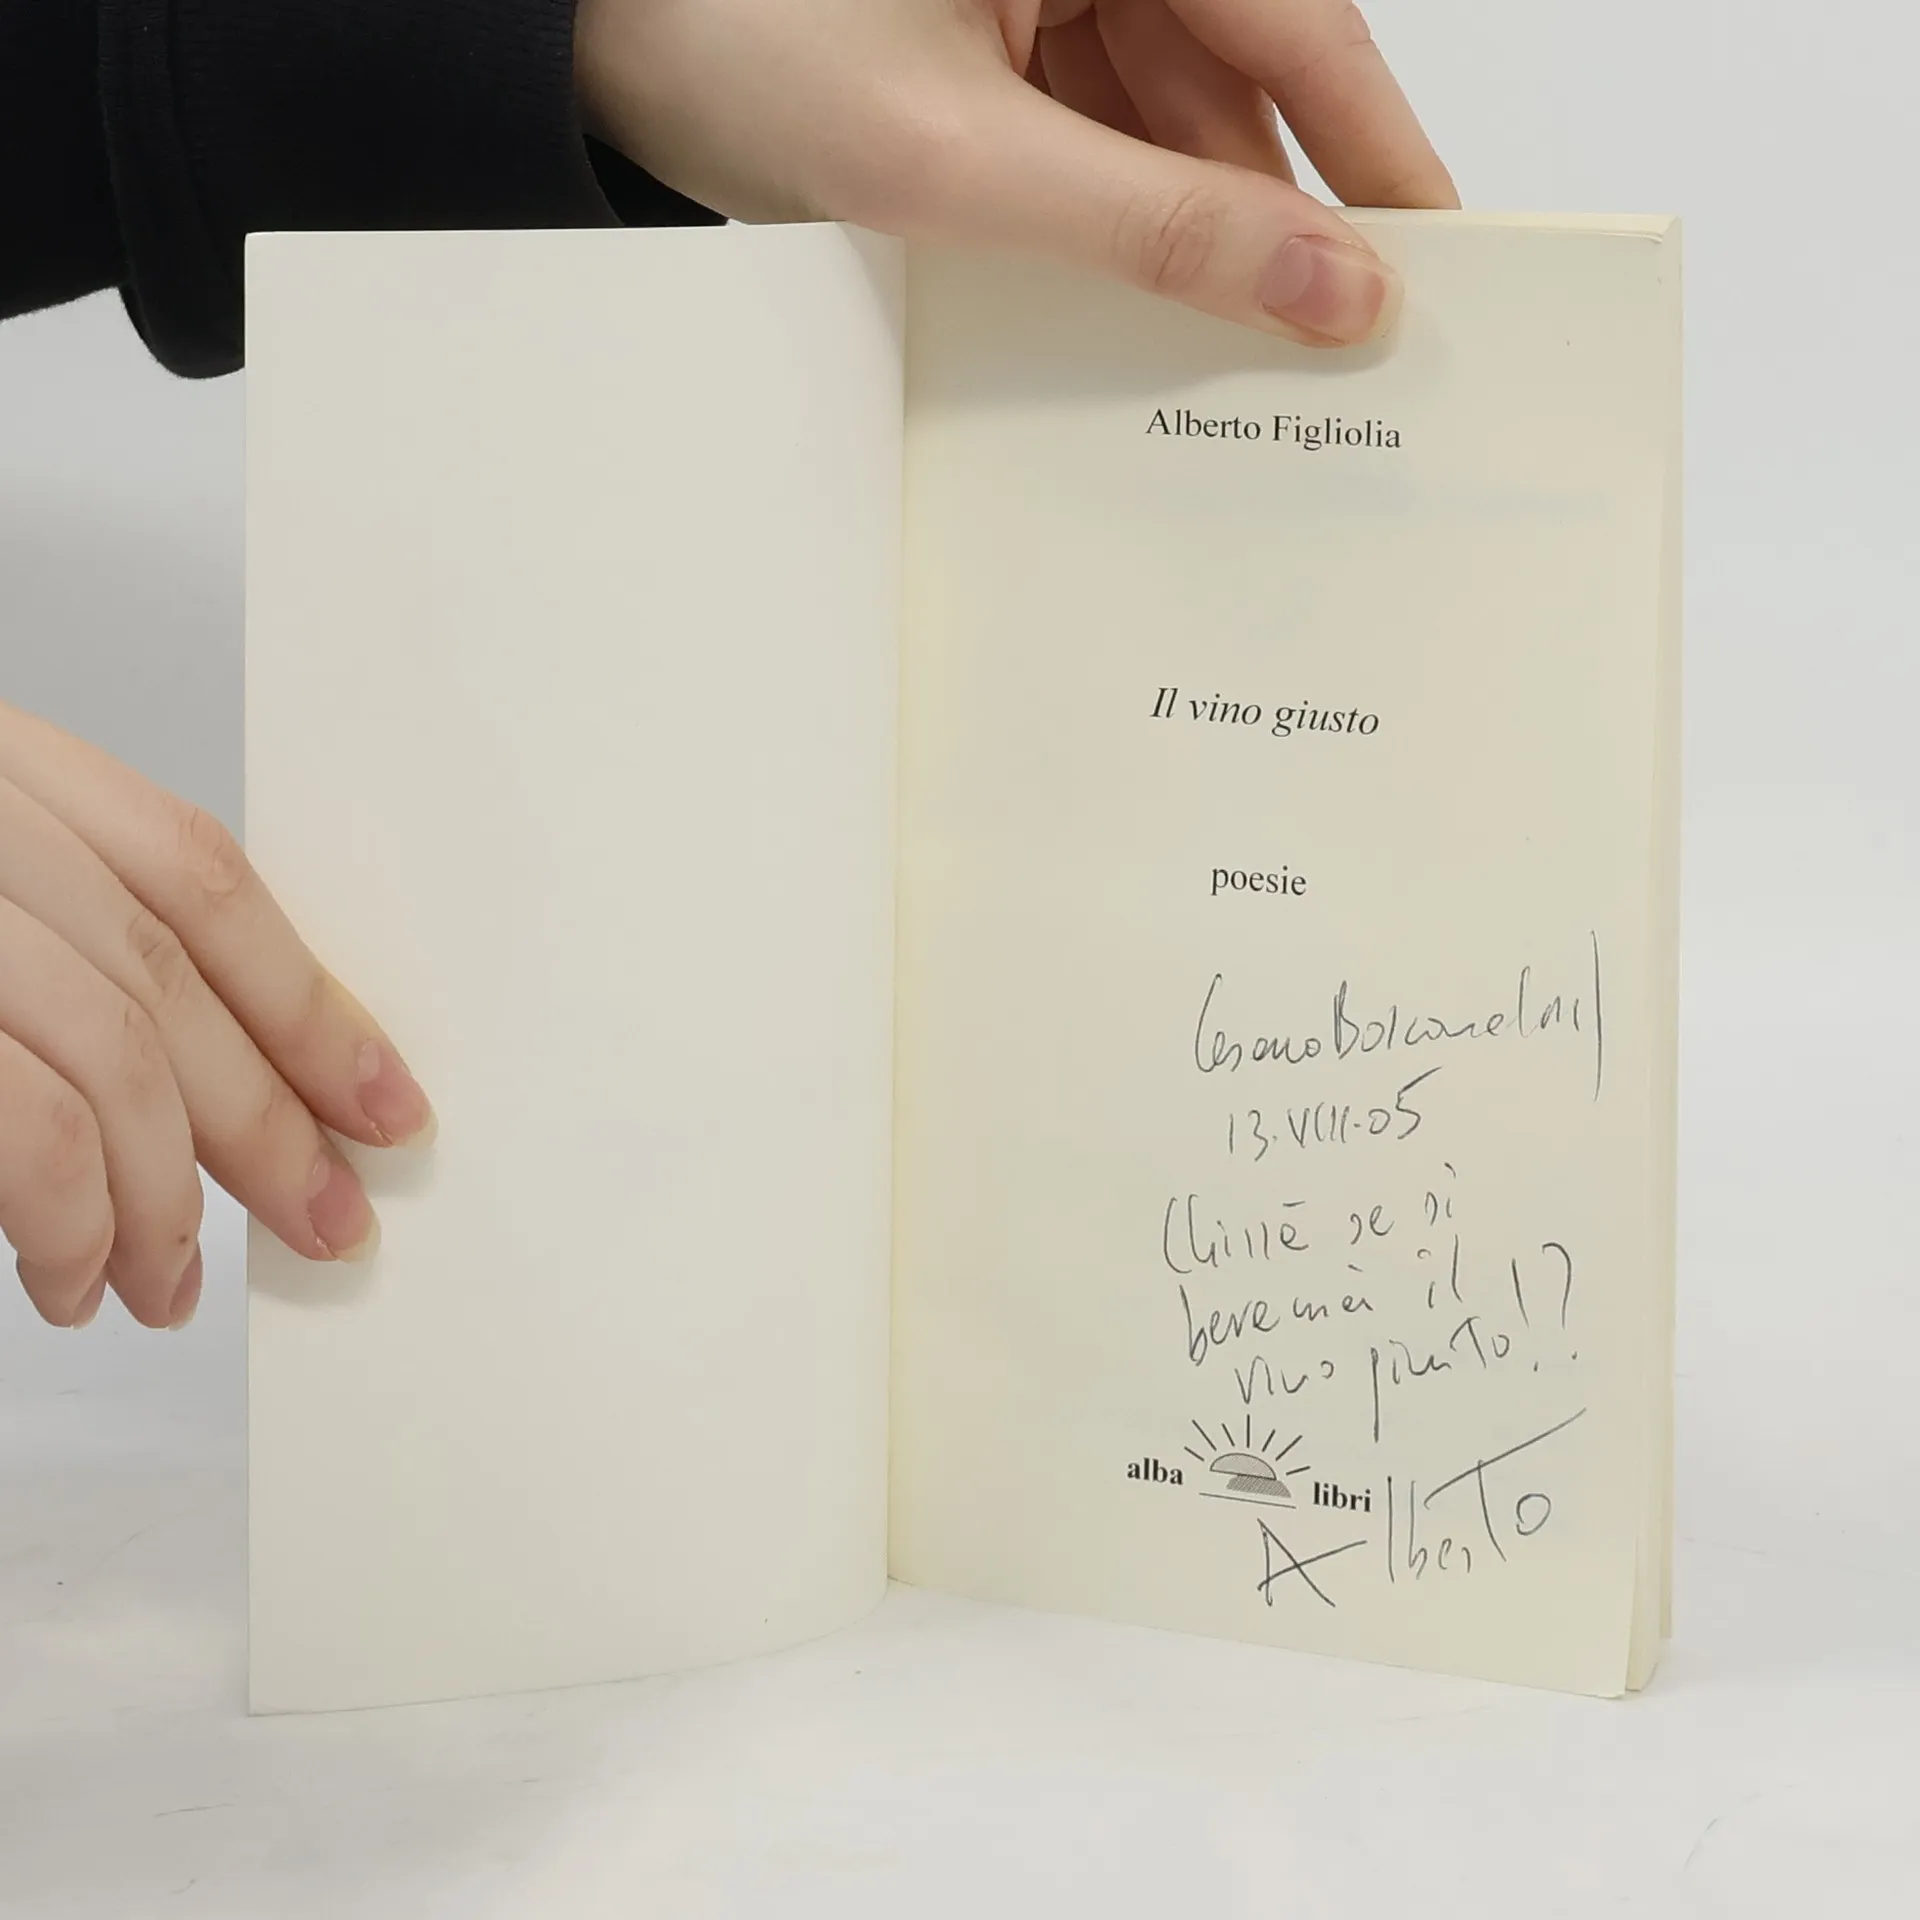 Alberto Figliolia
Il vino giusto
poesie
Cesano Boscone (MI)
13.VIII.05
Chissà se si
berrà mai il
vino giusto!?
alba libri
Alberto